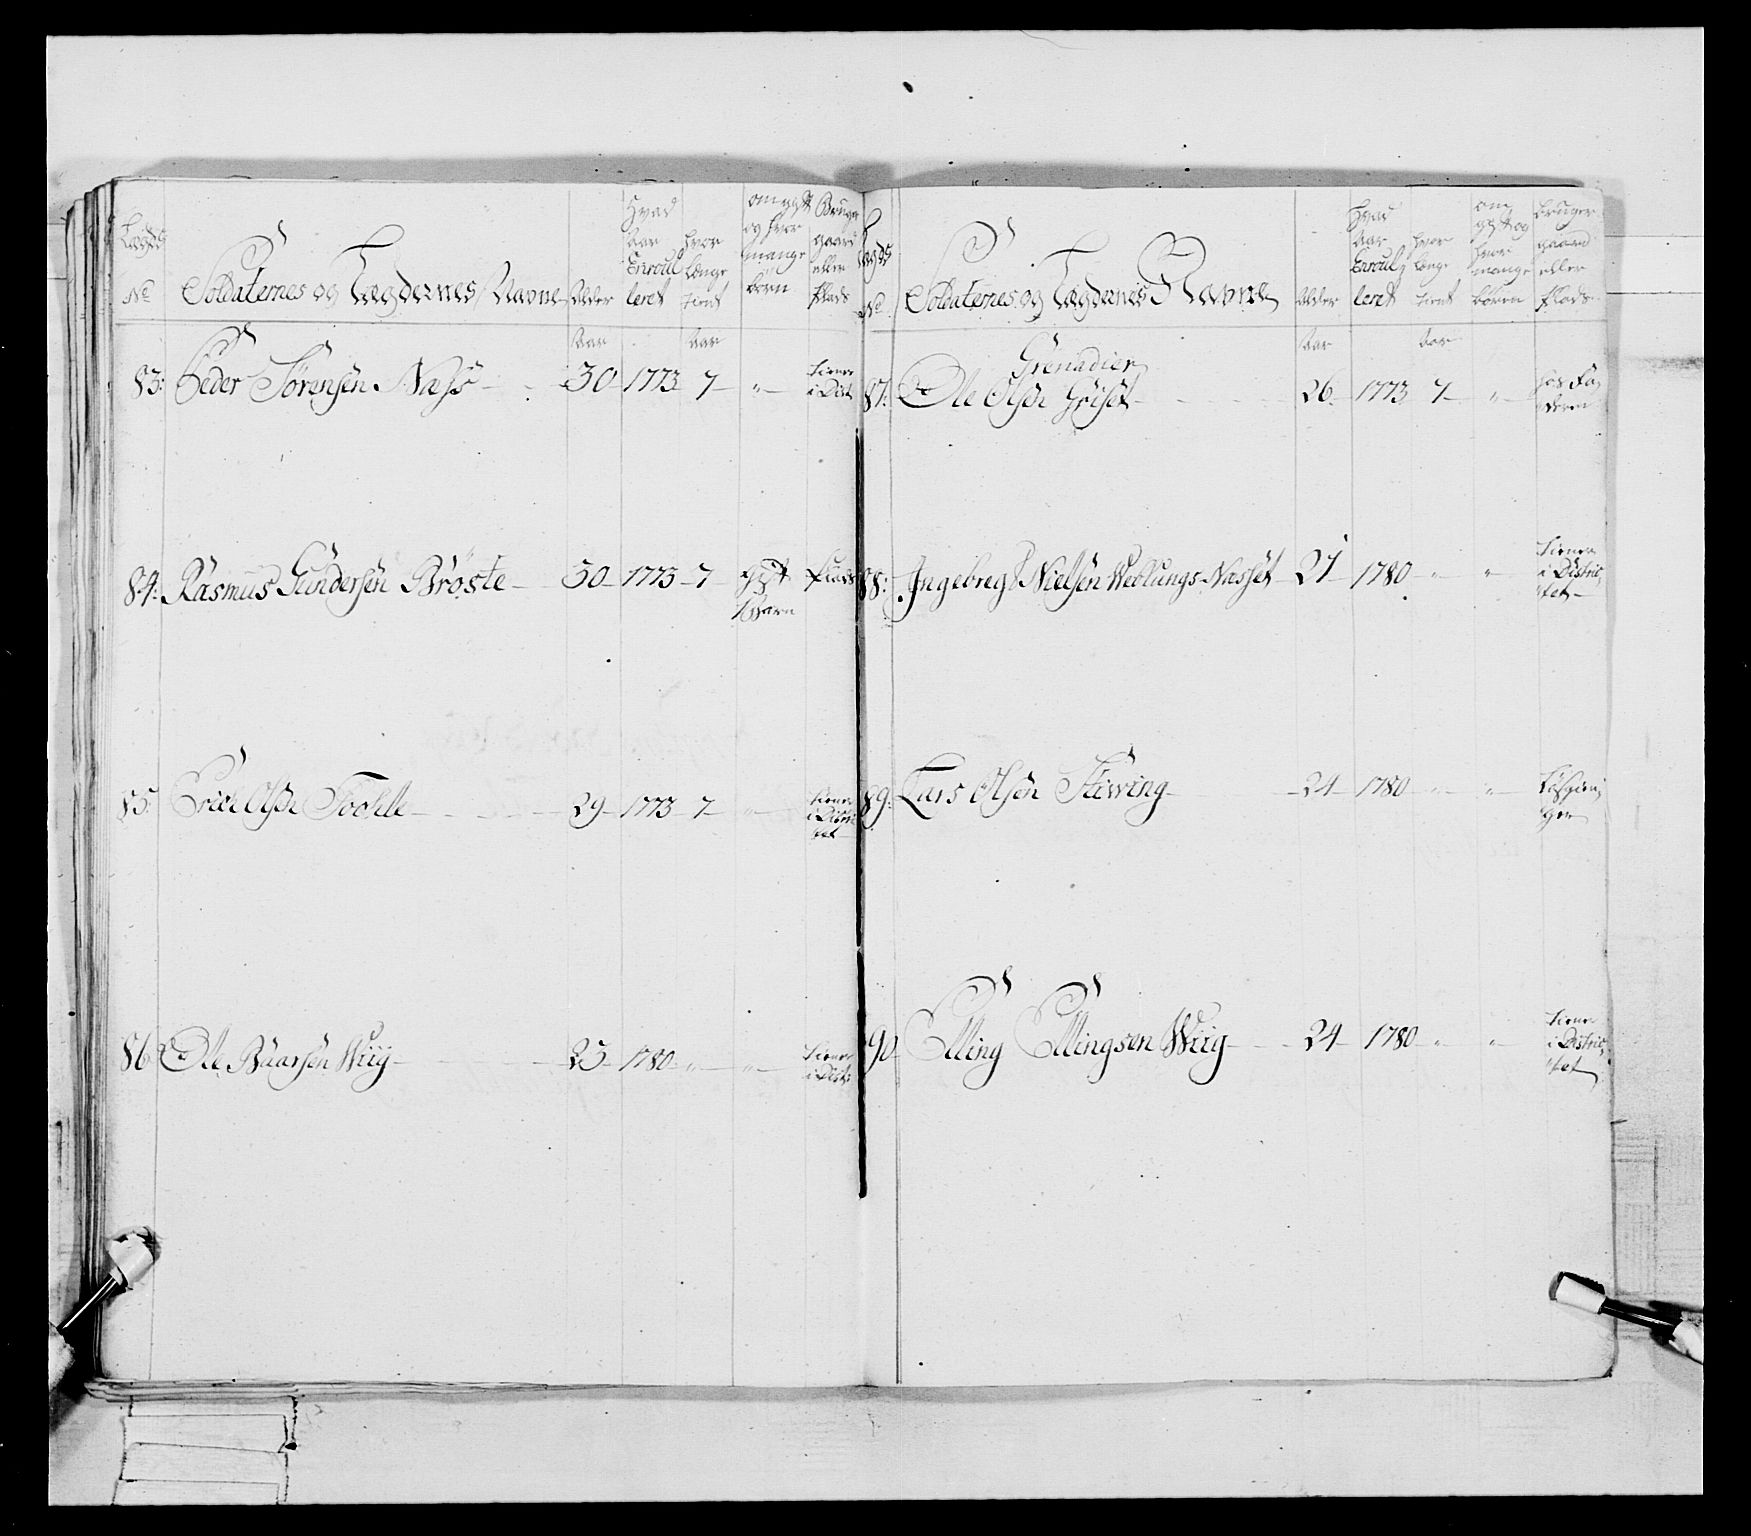 Lægds No Soldaternes og Lægdernes Navne Alder Hvad Aar Enroulleret hvor længe tient om gift og hvor mange børn Bruger gaard eller Plads
Aar Aar
83: Peder Sörensen Næss 30 1773 7 " tiener i Dist
84: Rasmus Gundersen Brøste 30 1773 7 gift 1 Barn Plads
85: Erich Olsen 29 1773 7 " tiener i Districtet
86 Ole Baarsen Wiig 25 1780 " " tiener i Dist:
Lægds No Soldaternes og Lægdernes Navne Alder Hvad Aar Enroulleret hvor længe tient om gift og hvor mange börn bruger gaard eller Plads
Aar Aar
Grenadier
87: Ole Olsen Griset 26 1773 7 " hos Faderen
88: Ingebregt Nielsen Weblungs Næsset 21 1780 " " tiener i Districtet
89: Lars Olsen 24 1780 " " Løsgænger
90 Elling Ellingsen Wiig 24 1780 " " tiener i Districtet